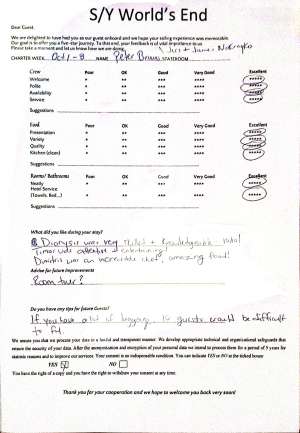 S/Y World's End
Dear Guest,
We are delighted to have had you as our guest onboard and we hope your sailing experience was memorable.
Our goal is to offer you a five-star journey. To that end, your feedback is of vital importance to us.
Please take a moment and let us know how we are doing.
CHARTER WEEK Oct 1 - 8 NAME Peter STATEROOM
Crew Poor OK Good Very Good Excellent
Welcome * ** *** **** *****
Polite * ** *** **** *****
Availability * ** *** **** *****
Service * ** *** **** *****
Suggestions
Food Poor OK Good Very Good Excellent
Presentation * ** *** **** *****
Variety * ** *** **** *****
Quality * ** *** **** *****
Kitchen (clean) * ** *** **** *****
Suggestions
Rooms/ Bathrooms Poor OK Good Very Good Excellent
Neatly * ** *** **** *****
Hotel Service * ** *** **** *****
(Towels, Bed...)
Suggestions
What did you like during your stay?
was very skilled + knowledgeable
was attentive + entertaining
Dimitris was an incredible chef, amazing food!
Advise for future improvements
Room tour?
Do you have any tips for future Guests?
If you have a lot of luggage, 10 guests could be difficult
to fit.
We ensure you that we process your data in a lawful and transparent manner. We develop appropriate technical and organizational safeguards that
ensure the security of your data. After the anonymization and encryption of your personal data we intend to process them for a period of 5 years for
statistic reasons and to improve our services. Your consent is an indispensable condition. You can indicate YES or NO at the ticked boxes
YES NO
You have the right of a copy and you have the right to withdraw your consent at any time.
Thank you for your cooperation and we hope to welcome you back very soon!